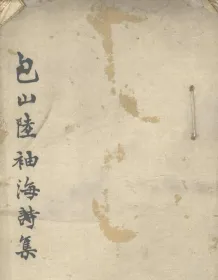 包山陸袖海詩集